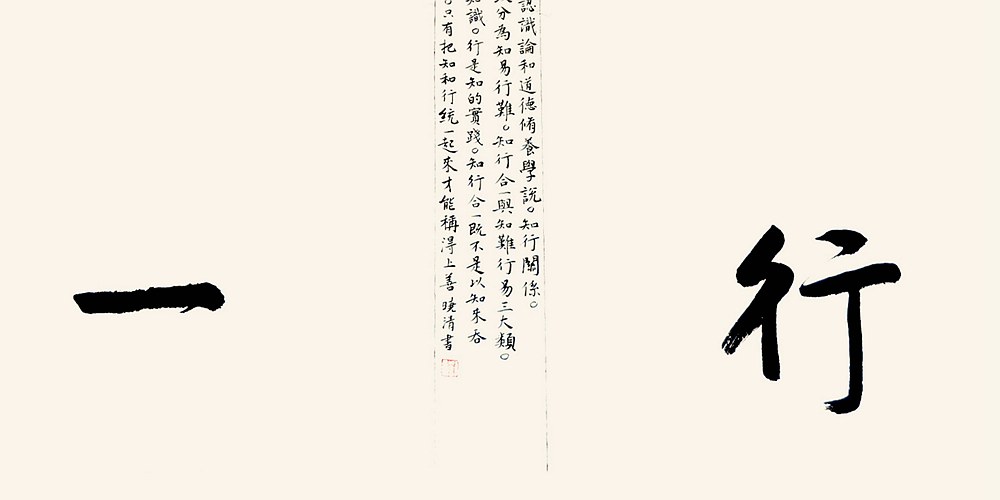 行
認識論和道德脩養學說。知行關係。
分為知易行難。知行合一與知難行易三大類。
識。行是知的實踐。知行合一既不是以知來吞
只有把知和行統一起來才能稱得上善 曉清書
一